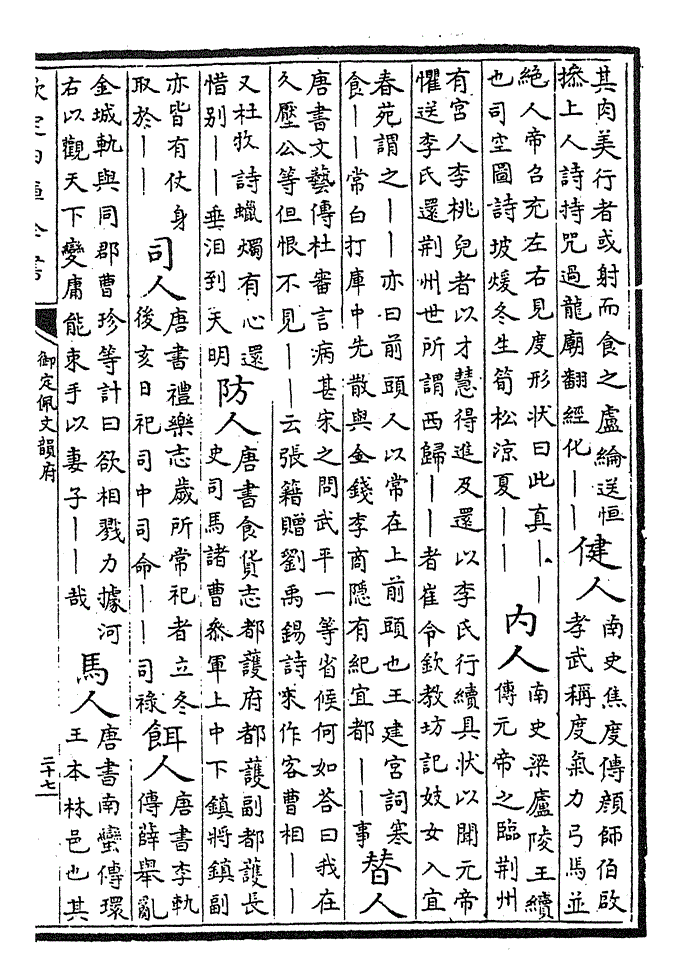 其肉美行者或射而食之盧綸送恒
摻上人詩持咒過龍廟翻經化丨丨
健人
南史焦度傳顔師伯啟
孝武稱度氣力弓馬並
絶人帝召充左右見度形狀曰此真丨丨
也司空圖詩坡煖冬生筍松涼夏丨丨
内人
南史梁廬陵王續
傳元帝之臨荆州
有宫人李桃兒者以才慧得進及還以李氏行續具狀以聞元帝
懼送李氏還荆州世所謂西歸丨丨者崔令欽教坊記妓女入宜
春苑謂之丨丨亦曰前頭人以常在上前頭也王建宫詞寒
食丨丨常白打庫中先散與金錢李商隱有紀宜都丨丨事
替人
唐書文藝傳杜審言病甚宋之問武平一等省候何如答曰我在
久壓公等但恨不見丨丨云張籍贈劉禹錫詩來作客曹相丨丨
又杜牧詩蠟燭有心還
惜别丨丨垂泪到天明
防人
唐書食貨志都護府都護副都護長
史司馬諸曹叅軍上中下鎮將鎮副
亦皆有仗身
取於丨丨
司人
唐書禮樂志歲所常祀者立冬
後亥日祀司中司命丨丨司祿
餌人
唐書李軌
傳薛舉亂
金城軌與同郡曹珍等計曰欲相戮力據河
右以觀天下變庸能束手以妻子丨丨哉
馬人
唐書南蠻傳環
王本林邑也其
欽定四庫全書
御定佩文韻府
二十七